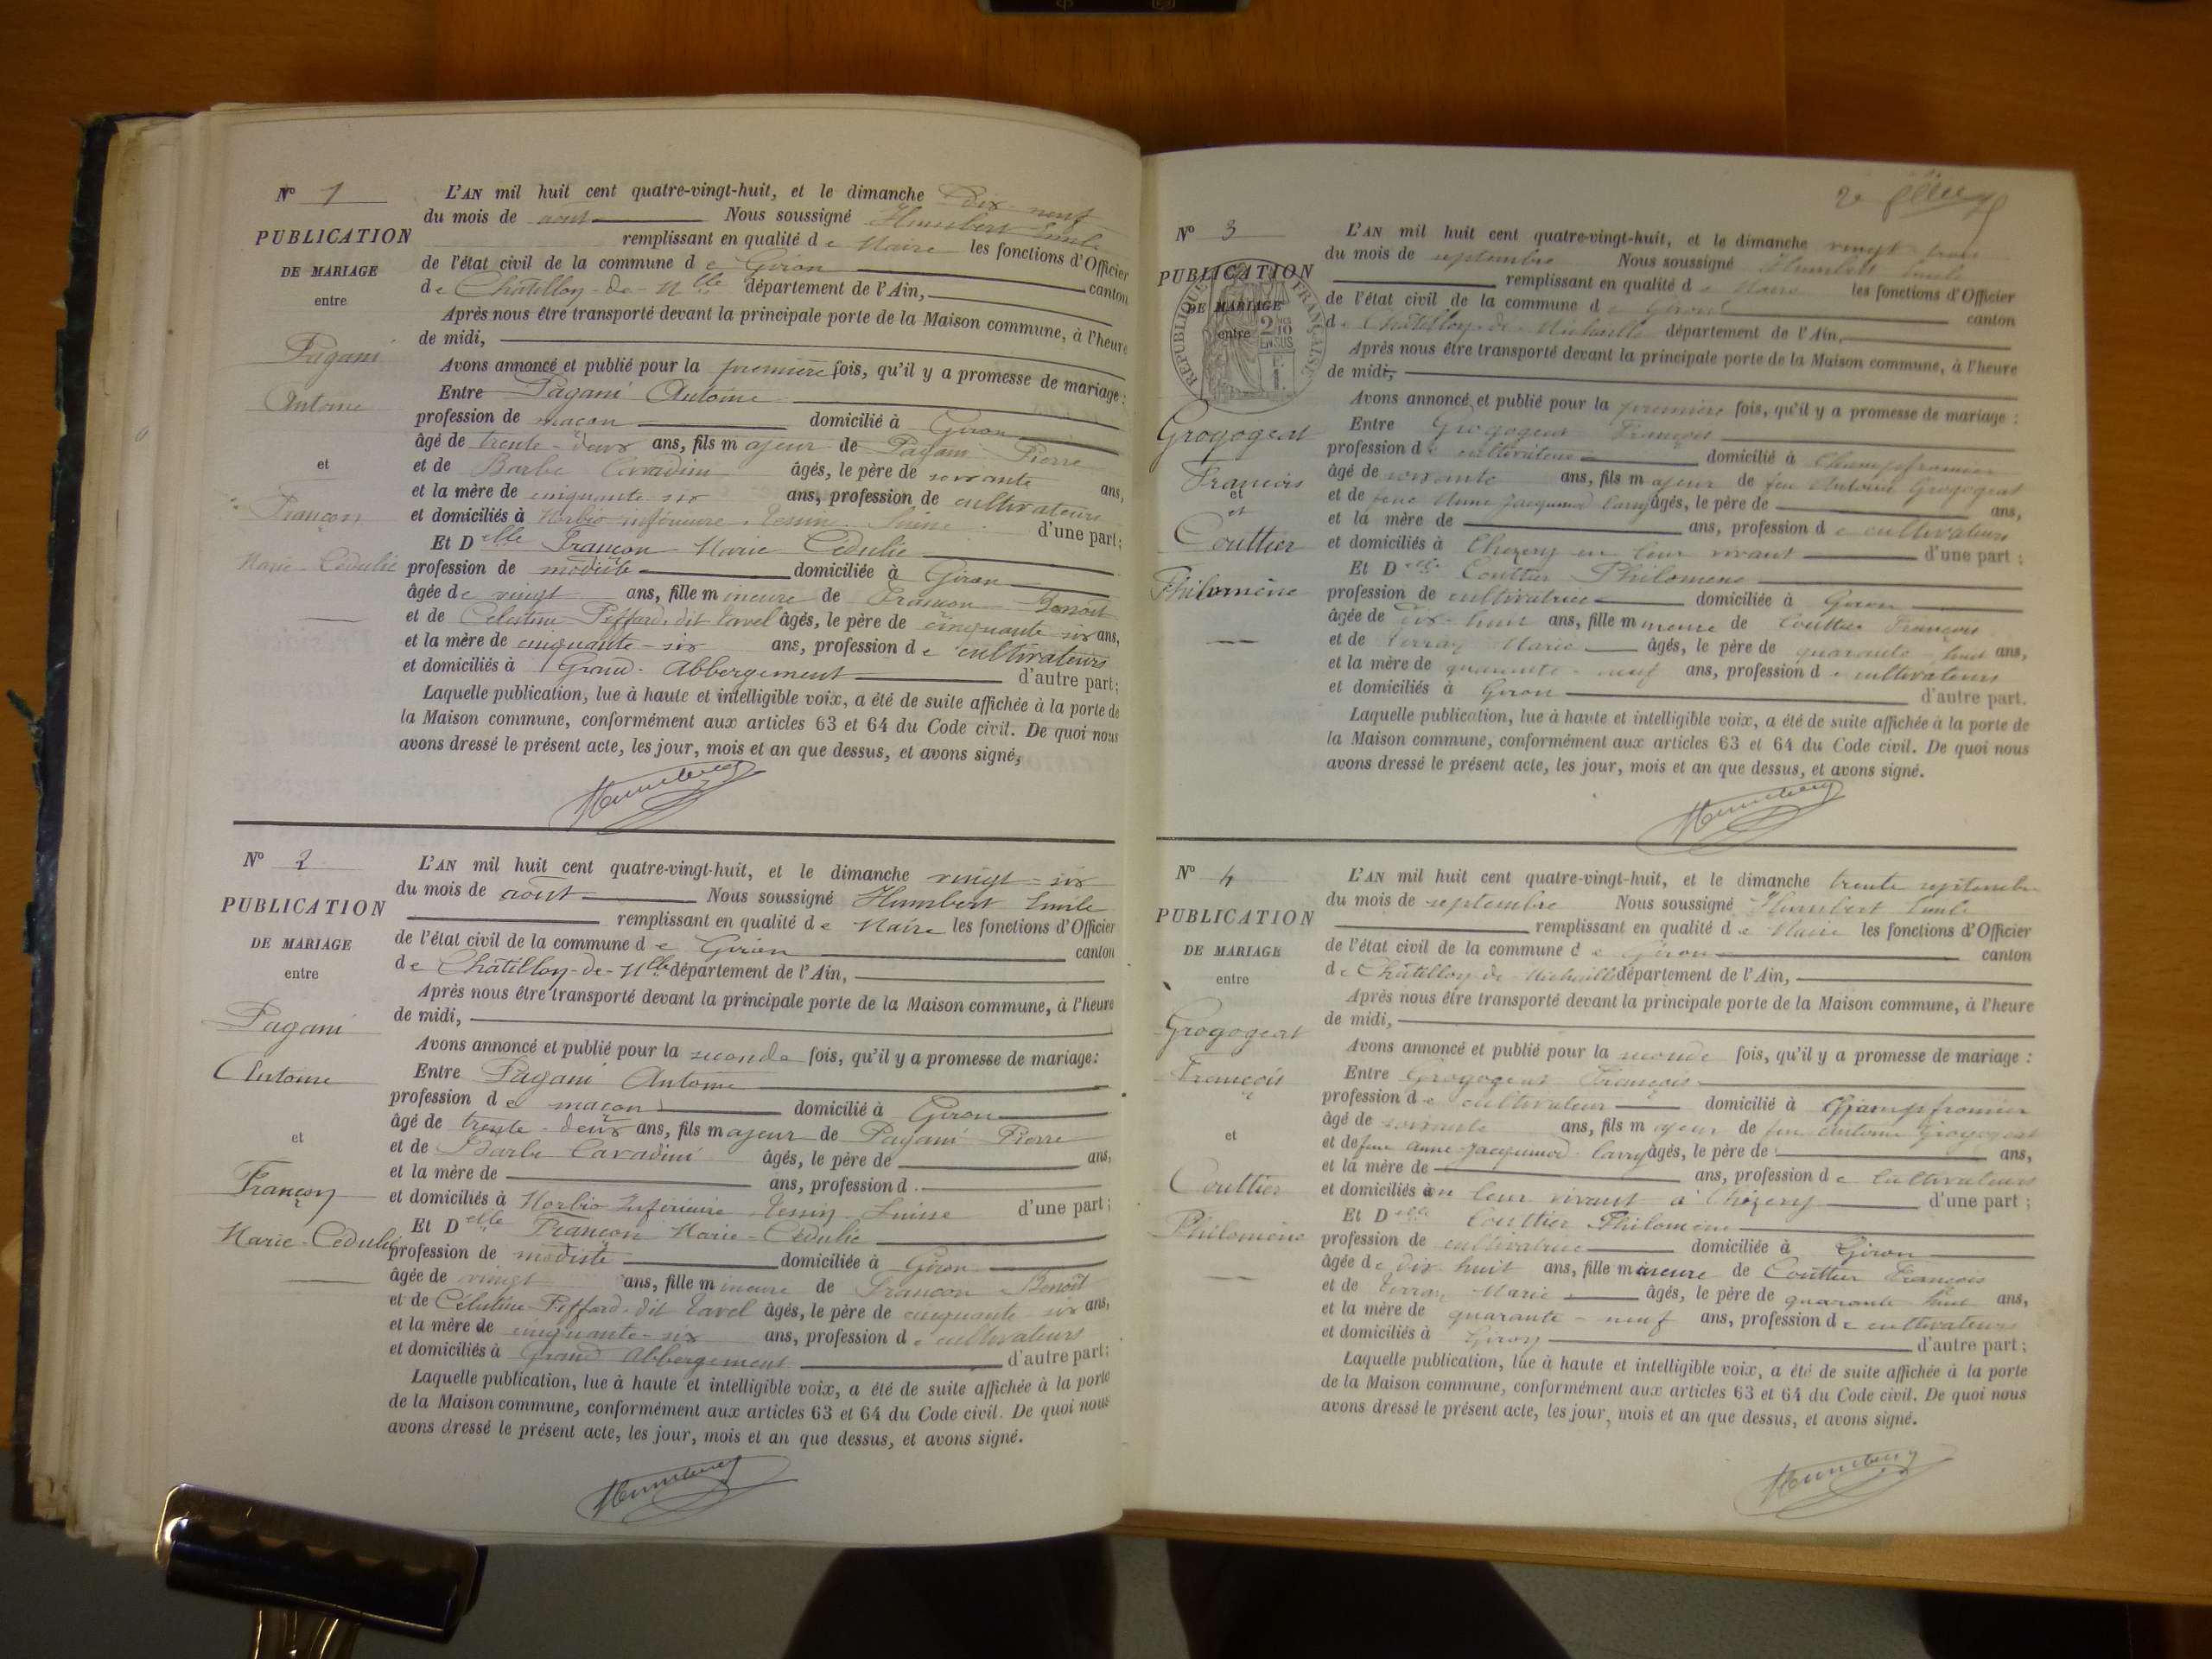 N° 1
PUBLICATION
DE MARIAGE
entre
Pagani
Antoine
et
Françon
Marie-Cédulie
L'AN mil huit cent quatre-vingt-huit, et le dimanche Dix-neuf
du mois de août Nous soussigné Humbert Emile
remplissant en qualité de Maire les fonctions d'Officier
de l'état civil de la commune de Giron canton
de Châtillon-de-Mlle département de l'Ain,
Après nous être transporté devant la principale porte de la Maison commune, à l'heure
de midi,
Avons annoncé et publié pour la première fois, qu'il y a promesse de mariage :
Entre Pagani Antoine
profession de maçon domicilié à Giron
âgé de trente-deux ans, fils majeur de Pagani Pierre
et de Barbe Cavadini âgés, le père de soixante ans,
et la mère de cinquante six ans, profession de cultivateurs
et domiciliés à Morbio inférieure Tessin Suisse d'une part ;
Et Delle Françon Marie Cédulie
profession de modiste domiciliée à Giron
âgée de vingt ans, fille mineure de Françon Benoit
et de Célestine Piffard-dit Tavel âgés, le père de cinquante six ans,
et la mère de cinquante-six ans, profession de cultivateurs
et domiciliés à Grand-Abbergement d'autre part ;
Laquelle publication, lue à haute et intelligible voix, a été de suite affichée à la porte de
la Maison commune, conformément aux articles 63 et 64 du Code civil. De quoi nous
avons dressé le présent acte, les jour, mois et an que dessus, et avons signé,
Humbert
N° 2
PUBLICATION
DE MARIAGE
entre
Pagani
Antoine
et
Françon
Marie-Cédulie
L'AN mil huit cent quatre-vingt-huit, et le dimanche vingt-six
du mois de août Nous soussigné Humbert Emile
remplissant en qualité de Maire les fonctions d'Officier
de l'état civil de la commune de Giron canton
de Châtillon-de-Mlle département de l'Ain,
Après nous être transporté devant la principale porte de la Maison commune, à l'heure
de midi,
Avons annoncé et publié pour la seconde fois, qu'il y a promesse de mariage :
Entre Pagani Antoine
profession de maçon domicilié à Giron
âgé de trente-deux ans, fils majeur de Pagani Pierre
et de Barbe Cavadini âgés, le père de ans,
et la mère de ans, profession d
et domiciliés à Morbio Inférieure Tessin Suisse d'une part ;
Et Delle Françon Marie-Cédulie
profession de modiste domiciliée à Giron
âgée de vingt ans, fille mineure de Françon Benoît
et de Célestine-Piffard-dit Tavel âgés, le père de cinquante six ans,
et la mère de cinquante-six ans, profession de cultivateurs
et domiciliés à Grand Abbergement d'autre part ;
Laquelle publication, lue à haute et intelligible voix, a été de suite affichée à la porte
de la Maison commune, conformément aux articles 63 et 64 du Code civil. De quoi nous
avons dressé le présent acte, les jour, mois et an que dessus, et avons signé.
Humbert
2e
N° 3
PUBLICATION
DE MARIAGE
entre
RÉPUBLIQUE FRANÇAISE
2/10
EN SUS
Grogogeat
François
et
et
Couttier
Philomène
L'AN mil huit cent quatre-vingt-huit, et le dimanche vingt trois
du mois de septembre Nous soussigné Humbert Emile
remplissant en qualité de Maire les fonctions d'Officier
de l'état civil de la commune de Giron canton
de Châtillon-de-Michaille département de l'Ain,
Après nous être transporté devant la principale porte de la Maison commune, à l'heure
de midi,
Avons annoncé et publié pour la première fois, qu'il y a promesse de mariage :
Entre Grogogeat François
profession de cultivateur domicilié à Champfromier
âgé de soixante ans, fils majeur de feu Antoine Grogogeat
et de feue Anne Jacquinod âgés, le père de ans,
et la mère de ans, profession de cultivateurs
et domiciliés à Chézery en leur vivant d'une part ;
Et Delle Couttier Philomène
profession de cultivatrice domiciliée à Giron
âgée de dix-huit ans, fille mineure de Couttier François
et de Marie âgés, le père de quarante-huit ans,
et la mère de quarante-neuf ans, profession de cultivateurs
et domiciliés à Giron d'autre part.
Laquelle publication, lue à haute et intelligible voix, a été de suite affichée à la porte de
la Maison commune, conformément aux articles 63 et 64 du Code civil. De quoi nous
avons dressé le présent acte, les jour, mois et an que dessus, et avons signé.
Humbert
N° 4
PUBLICATION
DE MARIAGE
entre
Grogogeat
François
et
Couttier
Philomène
L'AN mil huit cent quatre-vingt-huit, et le dimanche trente septembre
du mois de septembre Nous soussigné Humbert Emile
remplissant en qualité de Maire les fonctions d'Officier
de l'état civil de la commune de Giron canton
de Châtillon-de-Michaille département de l'Ain,
Après nous être transporté devant la principale porte de la Maison commune, à l'heure
de midi,
Avons annoncé et publié pour la seconde fois, qu'il y a promesse de mariage :
Entre Grogogeat François
profession de cultivateur domicilié à Champfromier
âgé de soixante ans, fils majeur de feu Antoine Grogogeat
et de feue Anne-Jacquinod âgés, le père de ans,
et la mère de ans, profession de cultivateurs
et domiciliés en leur vivant à Chézery d'une part ;
Et Delle Couttier Philomène
profession de cultivatrice domiciliée à Giron
âgée de dix huit ans, fille mineure de Couttier François
et de Marie âgés, le père de quarante huit ans,
et la mère de quarante-neuf ans, profession de cultivateurs
et domiciliés à Giron d'autre part ;
Laquelle publication, lue à haute et intelligible voix, a été de suite affichée à la porte
de la Maison commune, conformément aux articles 63 et 64 du Code civil. De quoi nous
avons dressé le présent acte, les jour, mois et an que dessus, et avons signé.
Humbert